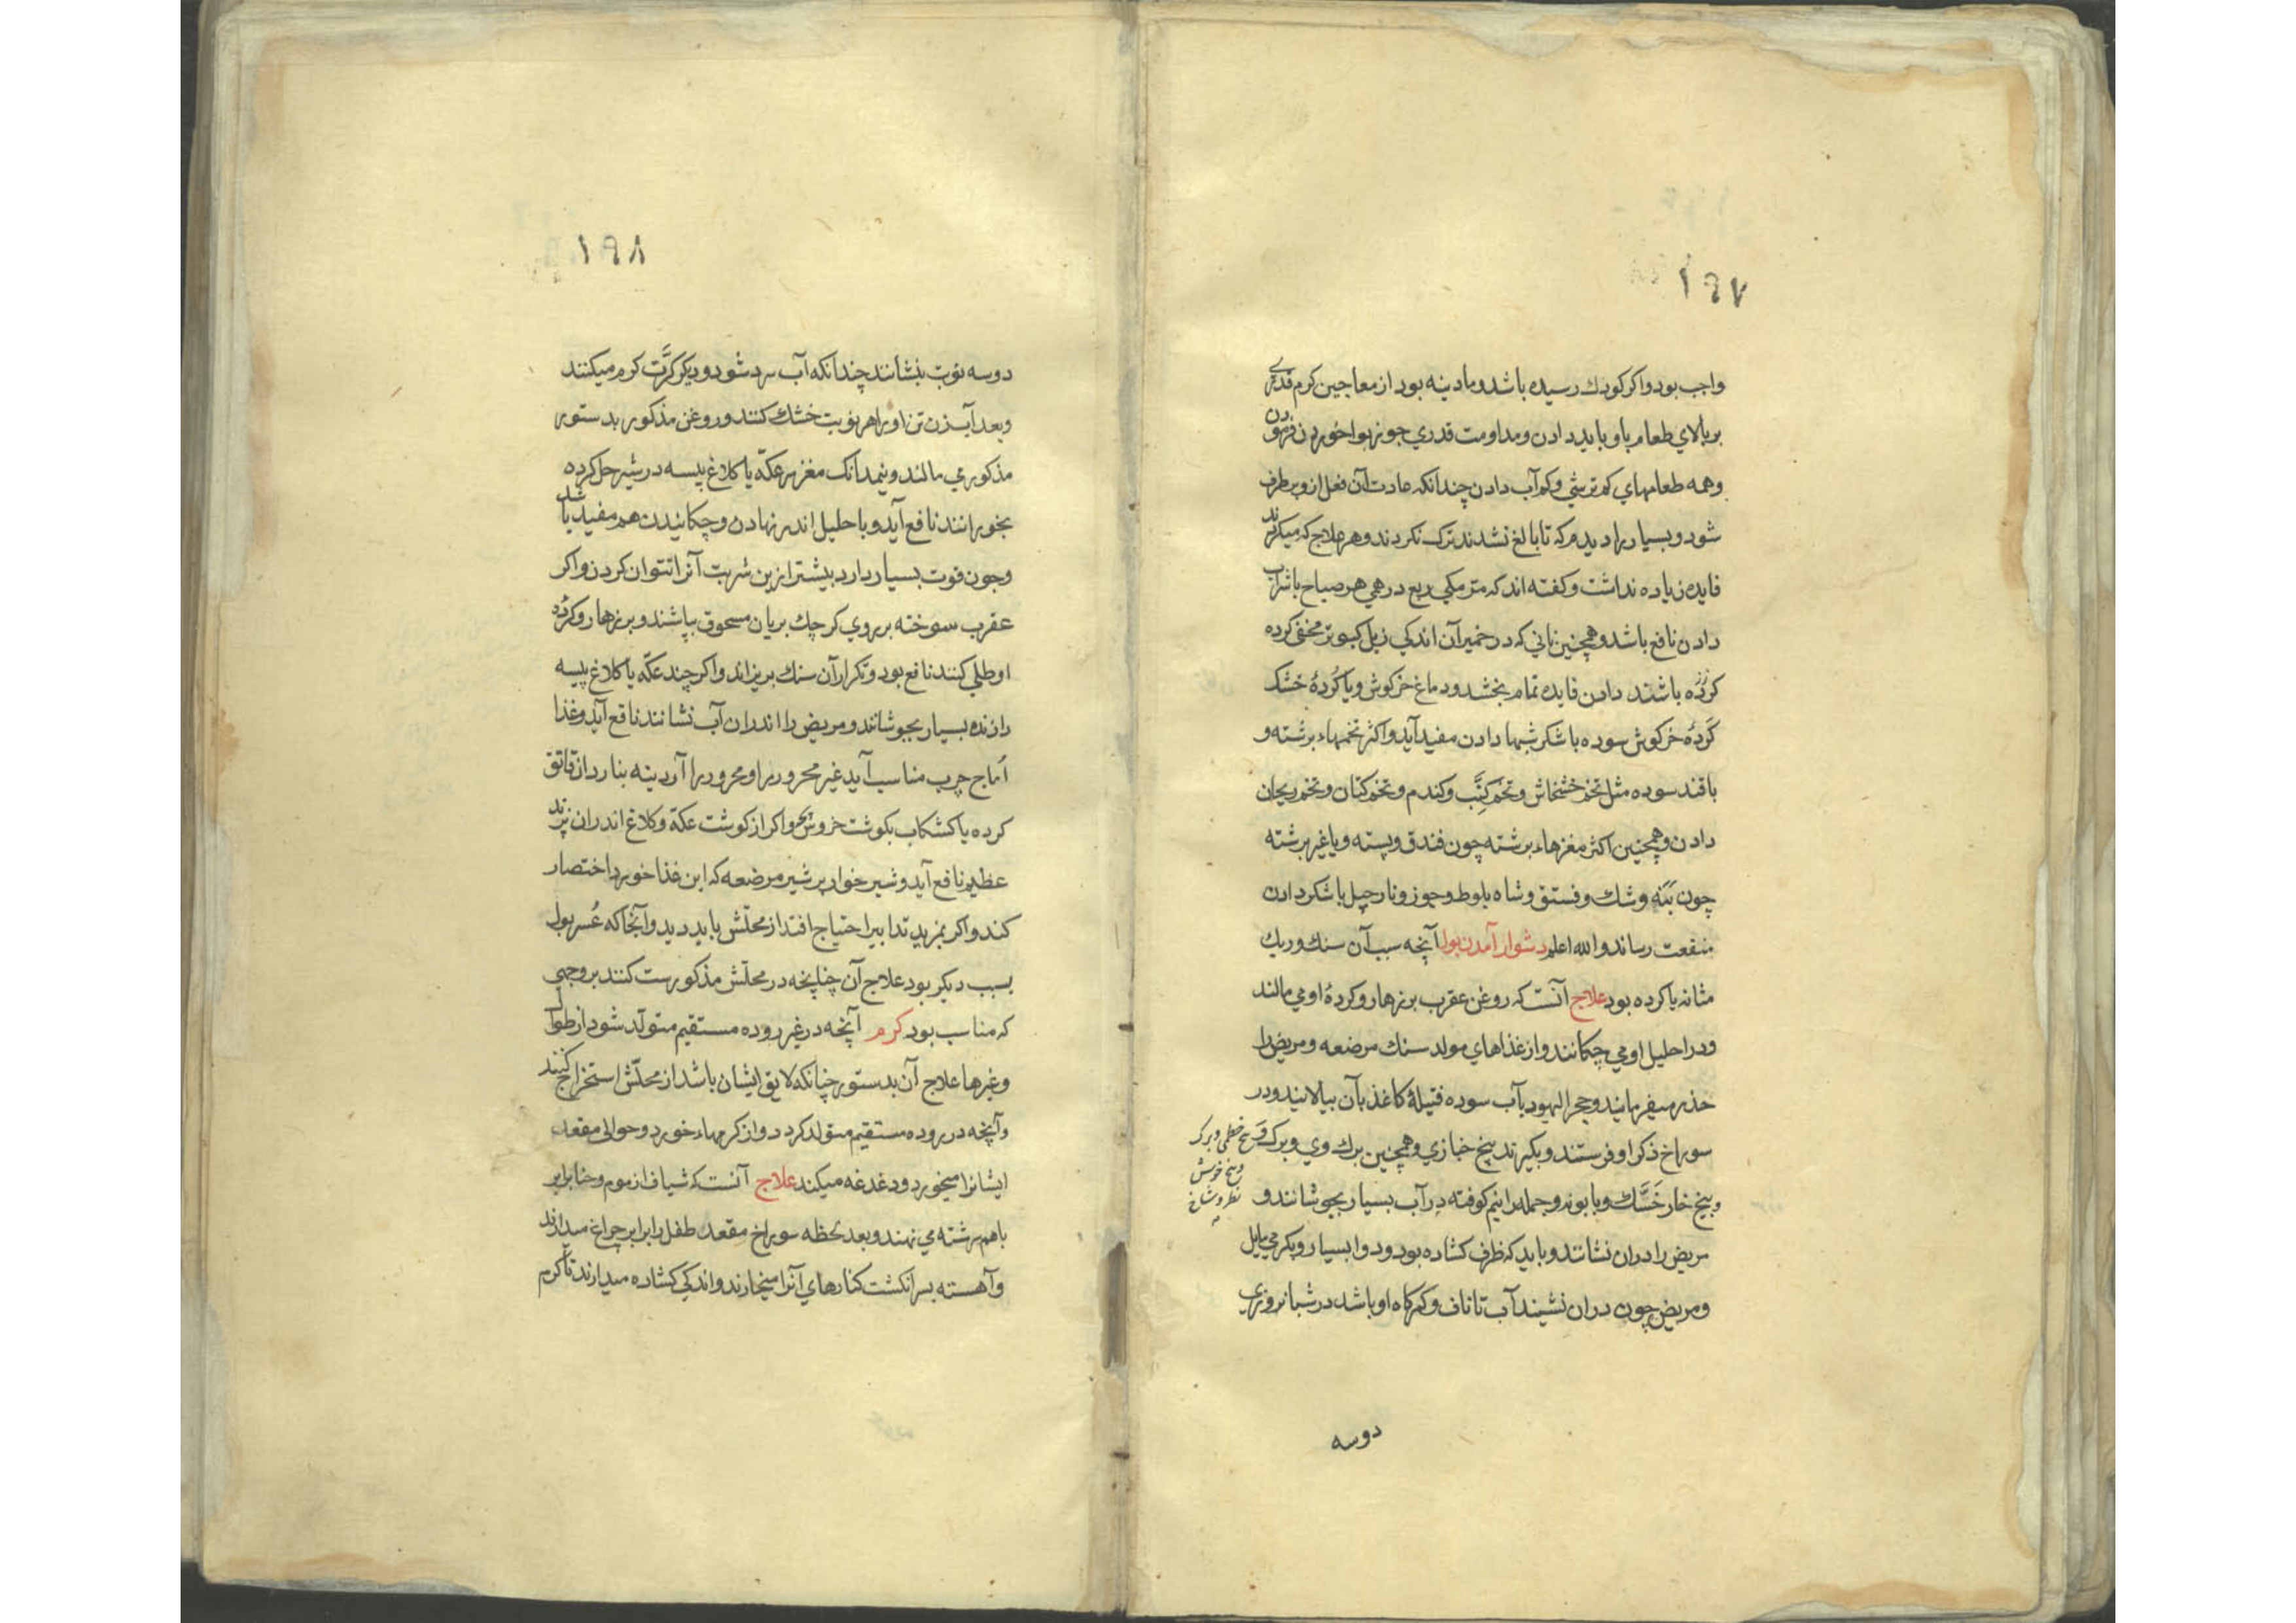 ۱۹۷
واجب بود و اکر کودك رسیده باشد و مادینه بود از معاجین کرم قدری
بر بالاي طعام باو باید دادن و مداومت قدري جوز بوا خوردن فرمودن
و همه طعامهاي کم ترشي و کم آب دادن چندانکه عادت آن فعل ازو برطرف
شود و بسیار را دیدم که تا بالغ نشدند ترك نکردند و هر علاج که میکردند
فایده زیاده نداشت و کفته اند که مر مکي ربع درهمي هر صباح با شراب
دادن نافع باشد و همچنین ناني که در خمیر آن اندکي زبل کبوتر مخفي کرده
کرده باشند دادن فایده تمام بخشد و دماغ خرکوش و یا کردهٔ خشك
کردهٔ خرکوش سوده با شکر شبها دادن مفید آید و اکثر تخمهاء برشته و
با قند سوده مثل تخم خشخاش و تخم کنب و کندم و تخم کتان و تخم ریحان
دادن و همچنین اکثر مغزهاء برشته چون فندق و پسته و یا غیر برشته
چون بنه وشك و فستق و شاه بلوط و جوز و نارجیل با شکر دادن
منفعت رساند و الله اعلم دشوار آمدن بول آنچه سبب آن سنك و ریك
مثانه یا کرده بود علاج آنست که روغن عقرب بر زهار و کردهٔ او مي مالند
و در احلیل او مي چکانند و از غذاهاي مولد سنك مرضعه و مریض را
حذر میفرمایند و حجر الیهود بآب سوده فتیلهٔ کاغذ بآن بیالایند و در
سوراخ ذکر او فرستند و بکیرند بیخ خبازي و همچنین برك وي و برك و بیخ خطمي و برك
و بیخ خوش
نظر و شاخ
و بیخ خار خسك و بابونه و جمله را نیم کوفته در آب بسیار بجوشانند و
مریض را دران نشانند و باید که ظرف کشاده بود و دوا بسیار و بکرمي مایل
و مریض چون دران نشیند آب تا ناف و کمرکاه او باشد در شبانروزي
دوسه
۱۹۸
دوسه نوبت بنشانند چندانکه آب سرد شود و دیکر کرّت کرم میکنند
و بعد آبزن تن او را هر نوبت خشك کنند و روغن مذکور بدستور
مذکور مي مالند و نیمدانك مغز سر عکّه یا کلاغ پیسه در شیر حل کرده
بخورانند نافع آید و با حلیل اندر نهادن و چکانیدن هم مفید باشد
و چون قوت بسیار دارد بیشتر ازین شربت آنرا نتوان کردن و اکر
عقرب سوخته بر روي کرچك بریان مسحوق بپاشند و بر زهار و کرده
او طلي کنند نافع بود و تکرار آن سنك بریزاند و اکر چند عکّه یا کلاغ پیسه
را زنده بسیار بجوشانند و مریض را اندران آب نشانند نافع آید و غذا
اُماج چرب مناسب آید غیر محرور را و محرور را آردینه بنارد از قاتق
کرده یا کشکاب بکوشت خروس بچه و اکر از کوشت عکّه و کلاغ اندران پزند
عظیم نافع آید و شیر خوار بر شیر مرضعه که این غذا خورد اختصار
کند و اکر بمزید تدابیر احتیاج افتد از محلّش باید دید و آنجا که عُسر بول
بسبب دیکر بود علاج آن چنانچه در محلّش مذکورست کنند بر وجهي
که مناسب بود کرم آنچه در غیر روده مستقیم متولد شود از طوال
و غیرها علاج آن بدستور چنانکه لایق ایشان باشد از محلّش استخراج کنند
و آنچه در روده مستقیم متولد کردد و از کرمهاء خورد و حوالی مقعد
ایشانرا میخورد و دغدغه میکند علاج آنست که شیاف از موم و حنا برابر
باهم سرشته مي نهند و بعد لحظه سوراخ مقعد طفل را برابر چراغ میدارند
و آهسته بسر انکشت کنارهاي آنرا میخارند و اندکي کشاده میدارند تا کرم